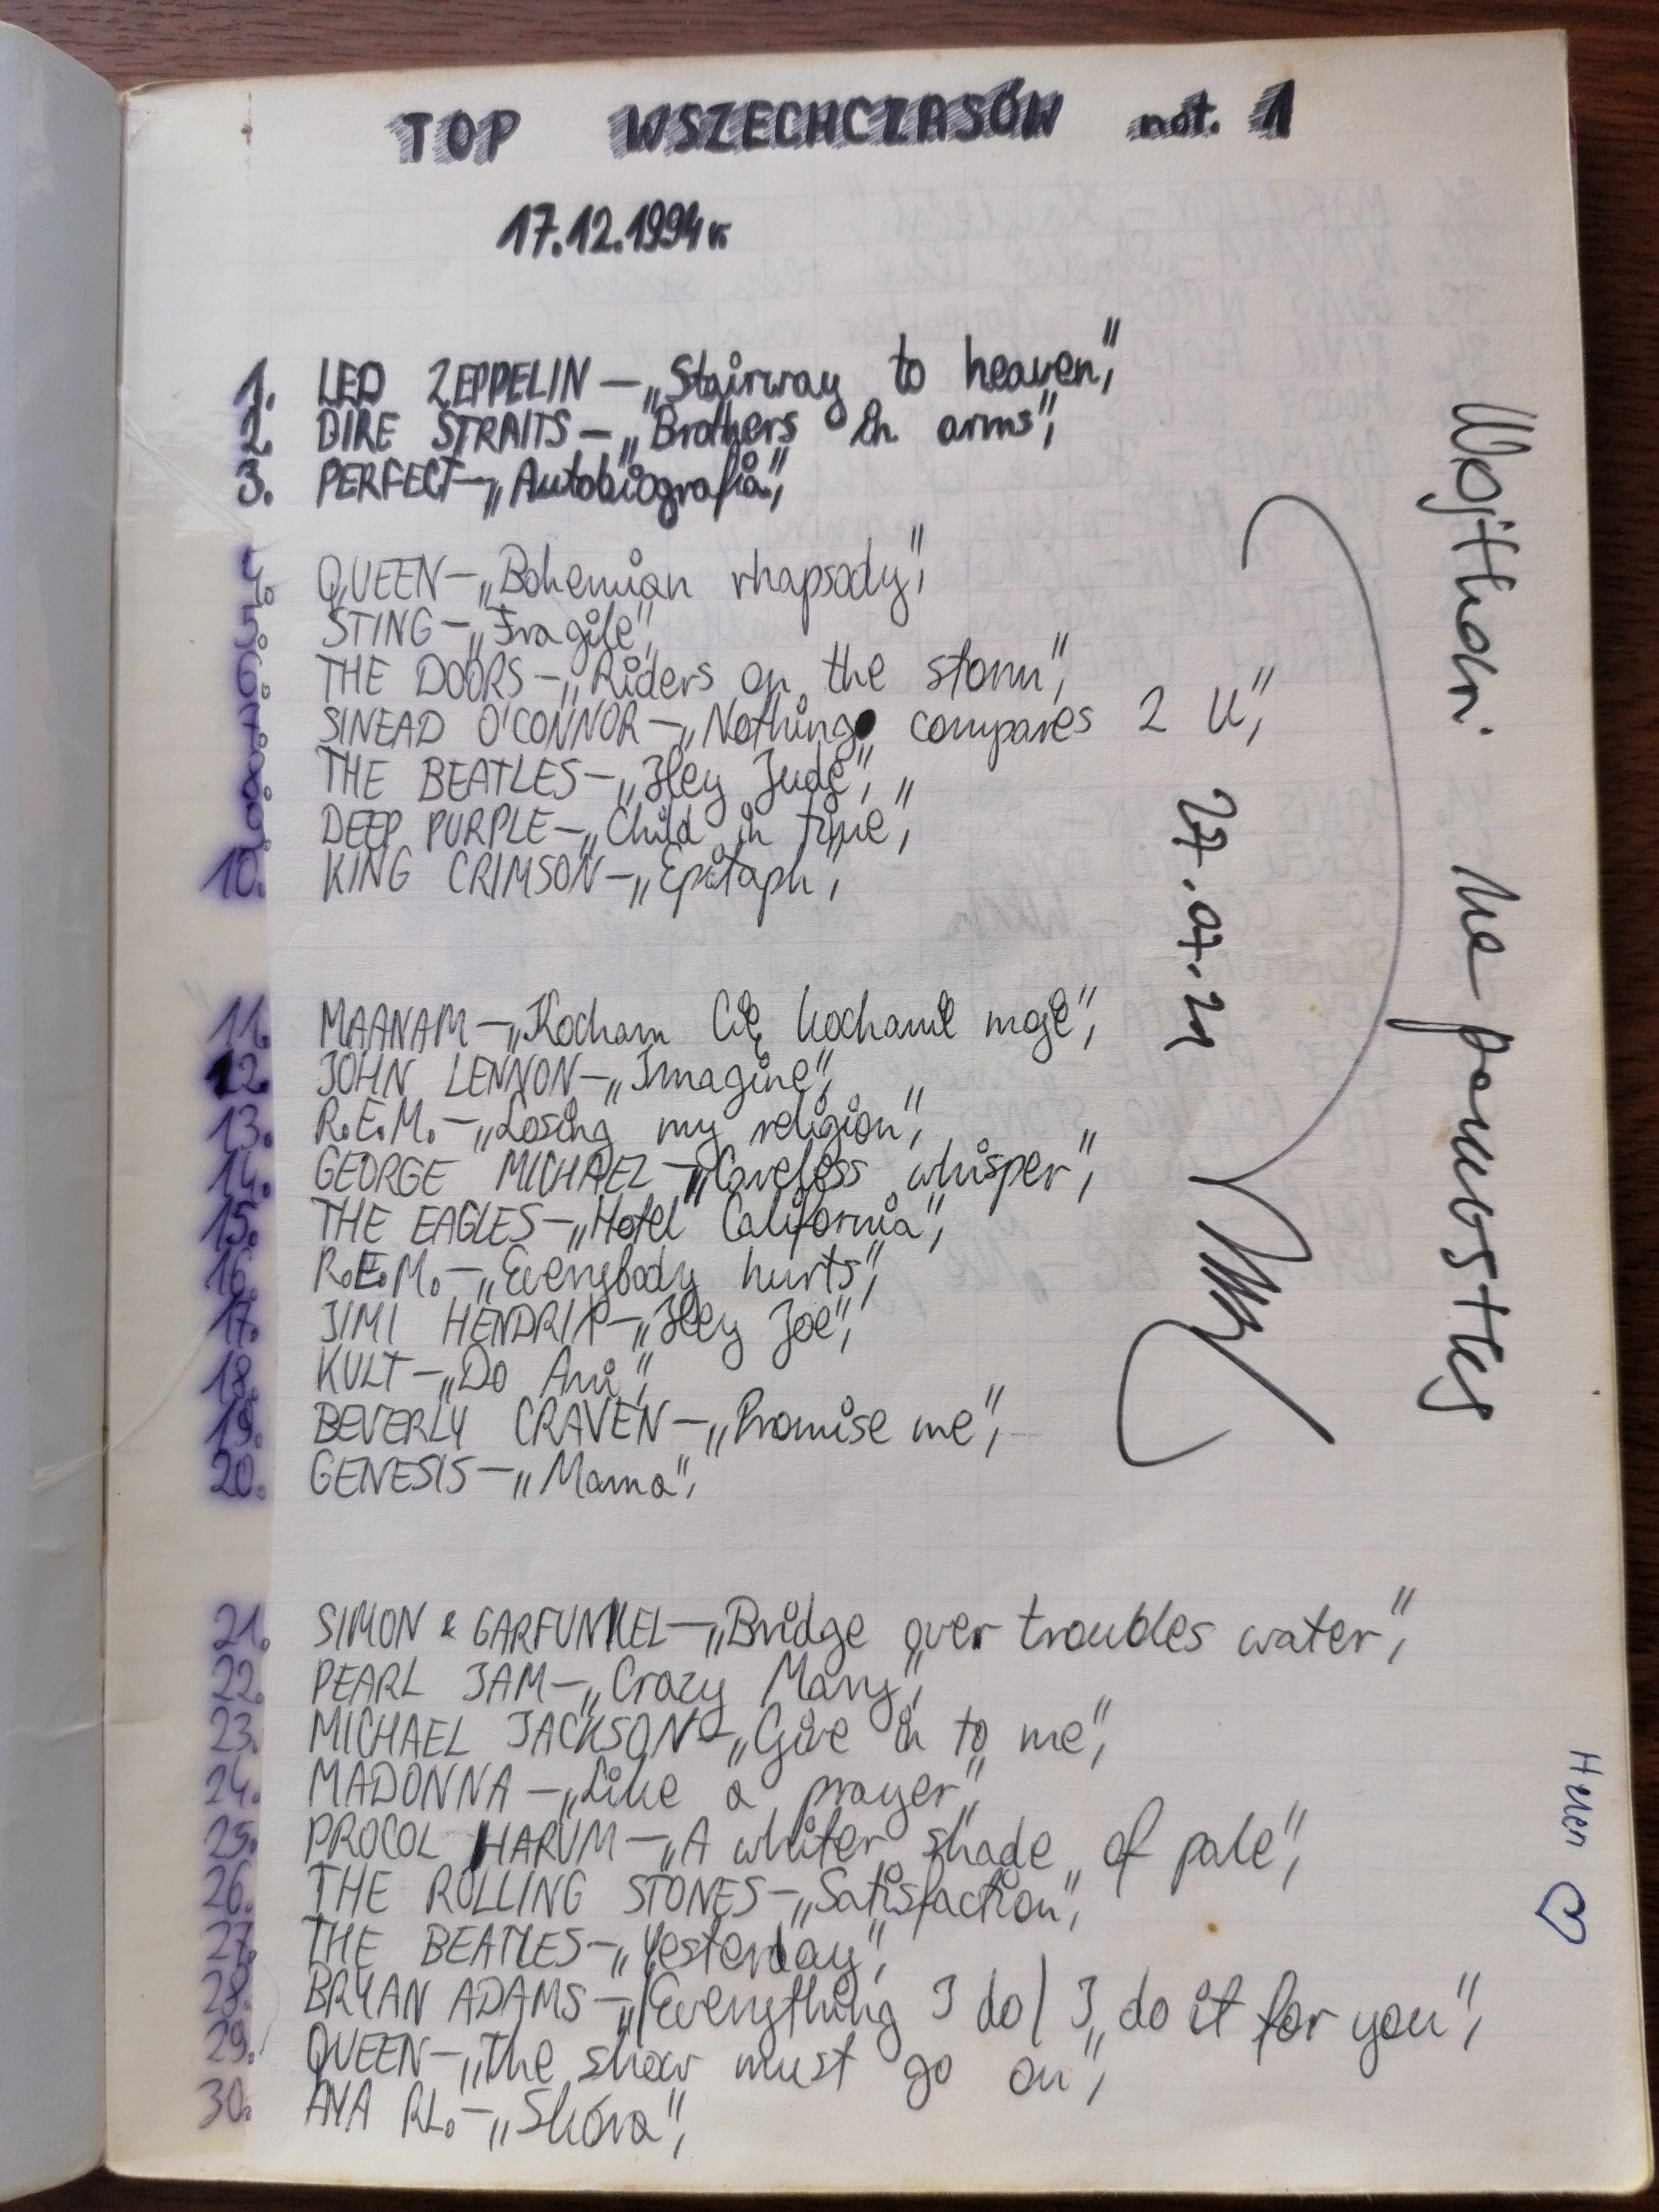 TOP WSZECHCZASÓW not. 1
17.12.1994r.
1. LED ZEPPELIN – „Stairway to heaven”,
2. DIRE STRAITS – „Brothers in arms”,
3. PERFECT – „Autobiografia”,
4. QUEEN – „Bohemian rhapsody”,
5. STING – „Fragile”,
6. THE DOORS – „Riders on the storm”,
7. SINEAD O'CONNOR – „Nothing compares 2 U”,
8. THE BEATLES – „Hey Jude”,
9. DEEP PURPLE – „Child in time”,
10. KING CRIMSON – „Epitaph”,
11. MAANAM – „Kocham Cię kochanie moje”,
12. JOHN LENNON – „Imagine”,
13. R.E.M. – „Losing my religion”,
14. GEORGE MICHAEL – „Careless whisper”,
15. THE EAGLES – „Hotel California”,
16. R.E.M. – „Everybody hurts”,
17. JIMI HENDRIX – „Hey Joe”,
18. KULT – „Do Ani”,
19. BEVERLY CRAVEN – „Promise me”,
20. GENESIS – „Mama”,
21. SIMON & GARFUNKEL – „Bridge over troubles water”,
22. PEARL JAM – „Crazy Mary”,
23. MICHAEL JACKSON – „Give in to me”,
24. MADONNA – „Like a prayer”,
25. PROCOL HARUM – „A whiter shade of pale”,
26. THE ROLLING STONES – „Satisfaction”,
27. THE BEATLES – „Yesterday”,
28. BRYAN ADAMS – „/Everything I do/ I do it for you”,
29. QUEEN – „The show must go on”,
30. AYA RL. – „Skóra”,
na
27.07.21
Helen ♡